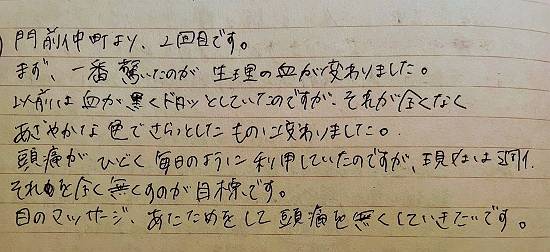 門前仲町より、2回目です。
まず、一番驚いたのが生理の血が変わりました。
以前は血が黒くドロッとしていたのですが、それが全くなく
あざやかな色でさらっとしたものに変わりました。
頭痛がひどく毎日のように利用していたのですが、現在は週1、
それを全く無くすのが目標です。
目のマッサージ、あたためをして頭痛を無くしていきたいです。